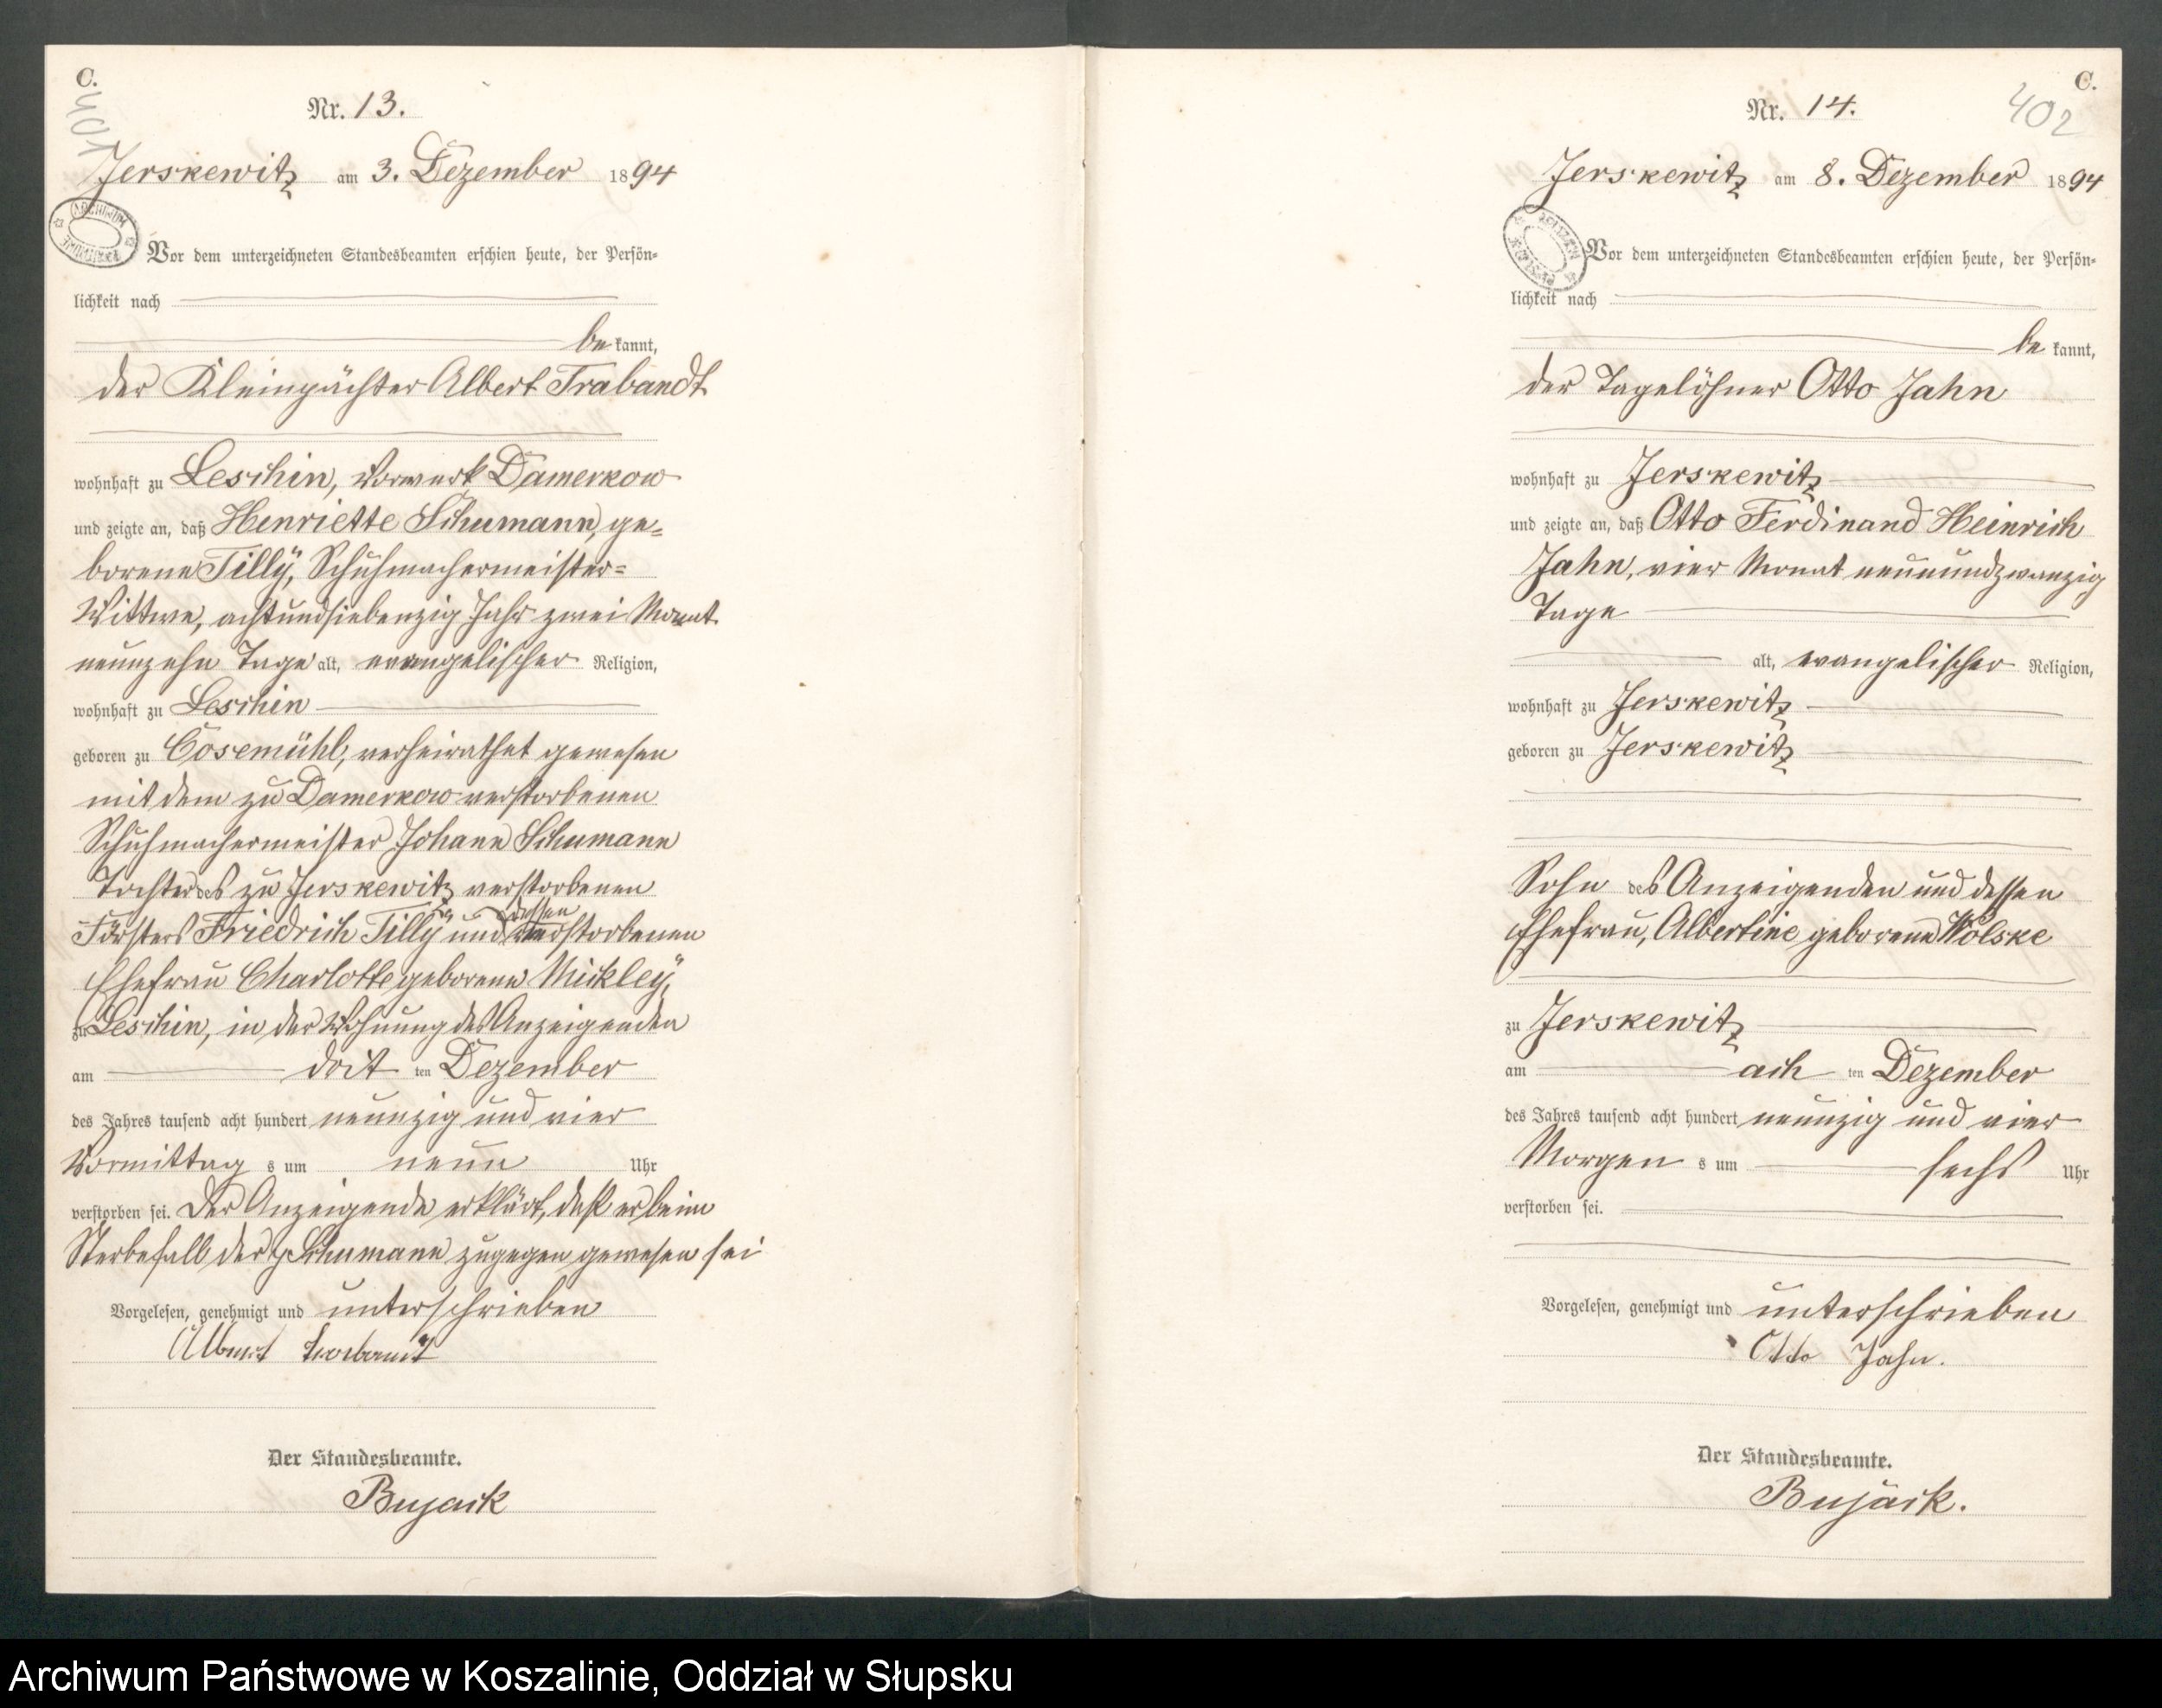 C.
401
Nr. 13.
Jerskewitz am 3. Dezember 1894
Vor dem unterzeichneten Standesbeamten erschien heute, der Persön-
lichkeit nach
be kannt,
der Kleinpächter Albert Trabandt
wohnhaft zu Leschin, Vorwerk Damerkow
und zeigte an, daß Henriette Schumann, ge-
borene Tilly, Schuhmachermeister-
Wittwe, achtundsiebenzig Jahr zwei Monat
neunzehn Tage alt, evangelischer Religion,
wohnhaft zu Leschin
geboren zu Cosemühl, verheirathet gewesen
mit dem zu Damerkow verstorbenen
Schuhmachermeister Johann Schumann
Tochter des zu Jerskewitz verstorbenen
Försters Friedrich Tilly und dessen verstorbenen
Ehefrau Charlotte geborene Mickley,
zu Leschin, in der Wohnung des Anzeigenden
am drit ten Dezember
des Jahres tausend acht hundert neunzig und vier
Vormittag s um neun Uhr
verstorben sei. Der Anzeigende erklärt, daß er beim
Sterbefall der p Schumann zugegen gewesen sei
Vorgelesen, genehmigt und unterschrieben
Albert Trabandt
Der Standesbeamte.
Bujack
C.
402
Nr. 14.
Jerskewitz am 8. Dezember 1894
Vor dem unterzeichneten Standesbeamten erschien heute, der Persön-
lichkeit nach
be kannt,
der Tagelöhner Otto Jahn
wohnhaft zu Jerskewitz
und zeigte an, daß Otto Ferdinand Heinrich
Jahn, vier Monat neunundzwanzig
Tage
alt, evangelischer Religion,
wohnhaft zu Jerskewitz
geboren zu Jerskewitz
Sohn des Anzeigenden und dessen
Ehefrau, Albertine geborene Wolske
zu Jerskewitz
am ach ten Dezember
des Jahres tausend acht hundert neunzig und vier
Morgen s um sechs Uhr
verstorben sei.
Vorgelesen, genehmigt und unterschrieben
Otto Jahn.
Der Standesbeamte.
Bujack.
Archiwum Państwowe w Koszalinie, Oddział w Słupsku